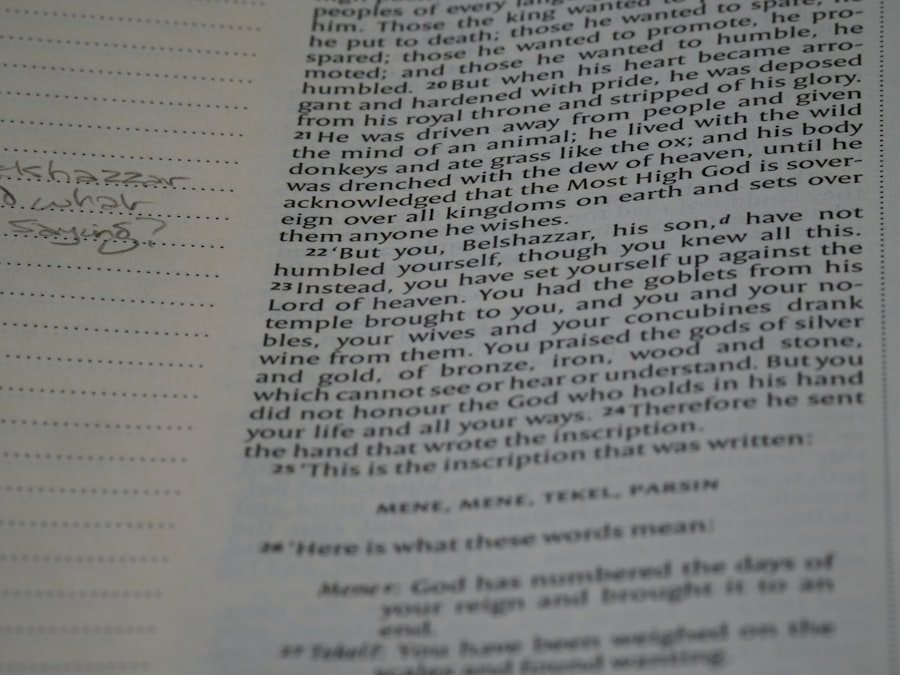 kshazzar
what
saying?
peoples of every
him. Those the king wanted to
he put to death; those he wanted to spare, he
spared; those he wanted to promote, he pro-
moted; and those he wanted to humble, he
humbled. 20 But when his heart became arro-
gant and hardened with pride, he was deposed
from his royal throne and stripped of his glory.
21 He was driven away from people and given
the mind of an animal; he lived with the wild
donkeys and ate grass like the ox; and his body
was drenched with the dew of heaven, until he
acknowledged that the Most High God is sover-
eign over all kingdoms on earth and sets over
them anyone he wishes.
22 'But you, Belshazzar, his son,d have not
humbled yourself, though you knew all this.
23 Instead, you have set yourself up against the
Lord of heaven. You had the goblets from his
temple brought to you, and you and your no-
bles, your wives and your concubines drank
wine from them. You praised the gods of silver
and gold, of bronze, iron, wood and stone,
which cannot see or hear or understand. But you
did not honour the God who holds in his hand
your life and all your ways. 24 Therefore he sent
the hand that wrote the inscription.
25 'This is the inscription that was written:
MENE, MENE, TEKEL, PARSIN
26 'Here is what these words mean:
Mene e: God has numbered the days of
your reign and brought it to an
end.
27 Tekel f: You have been weighed on the
scales and found wanting.